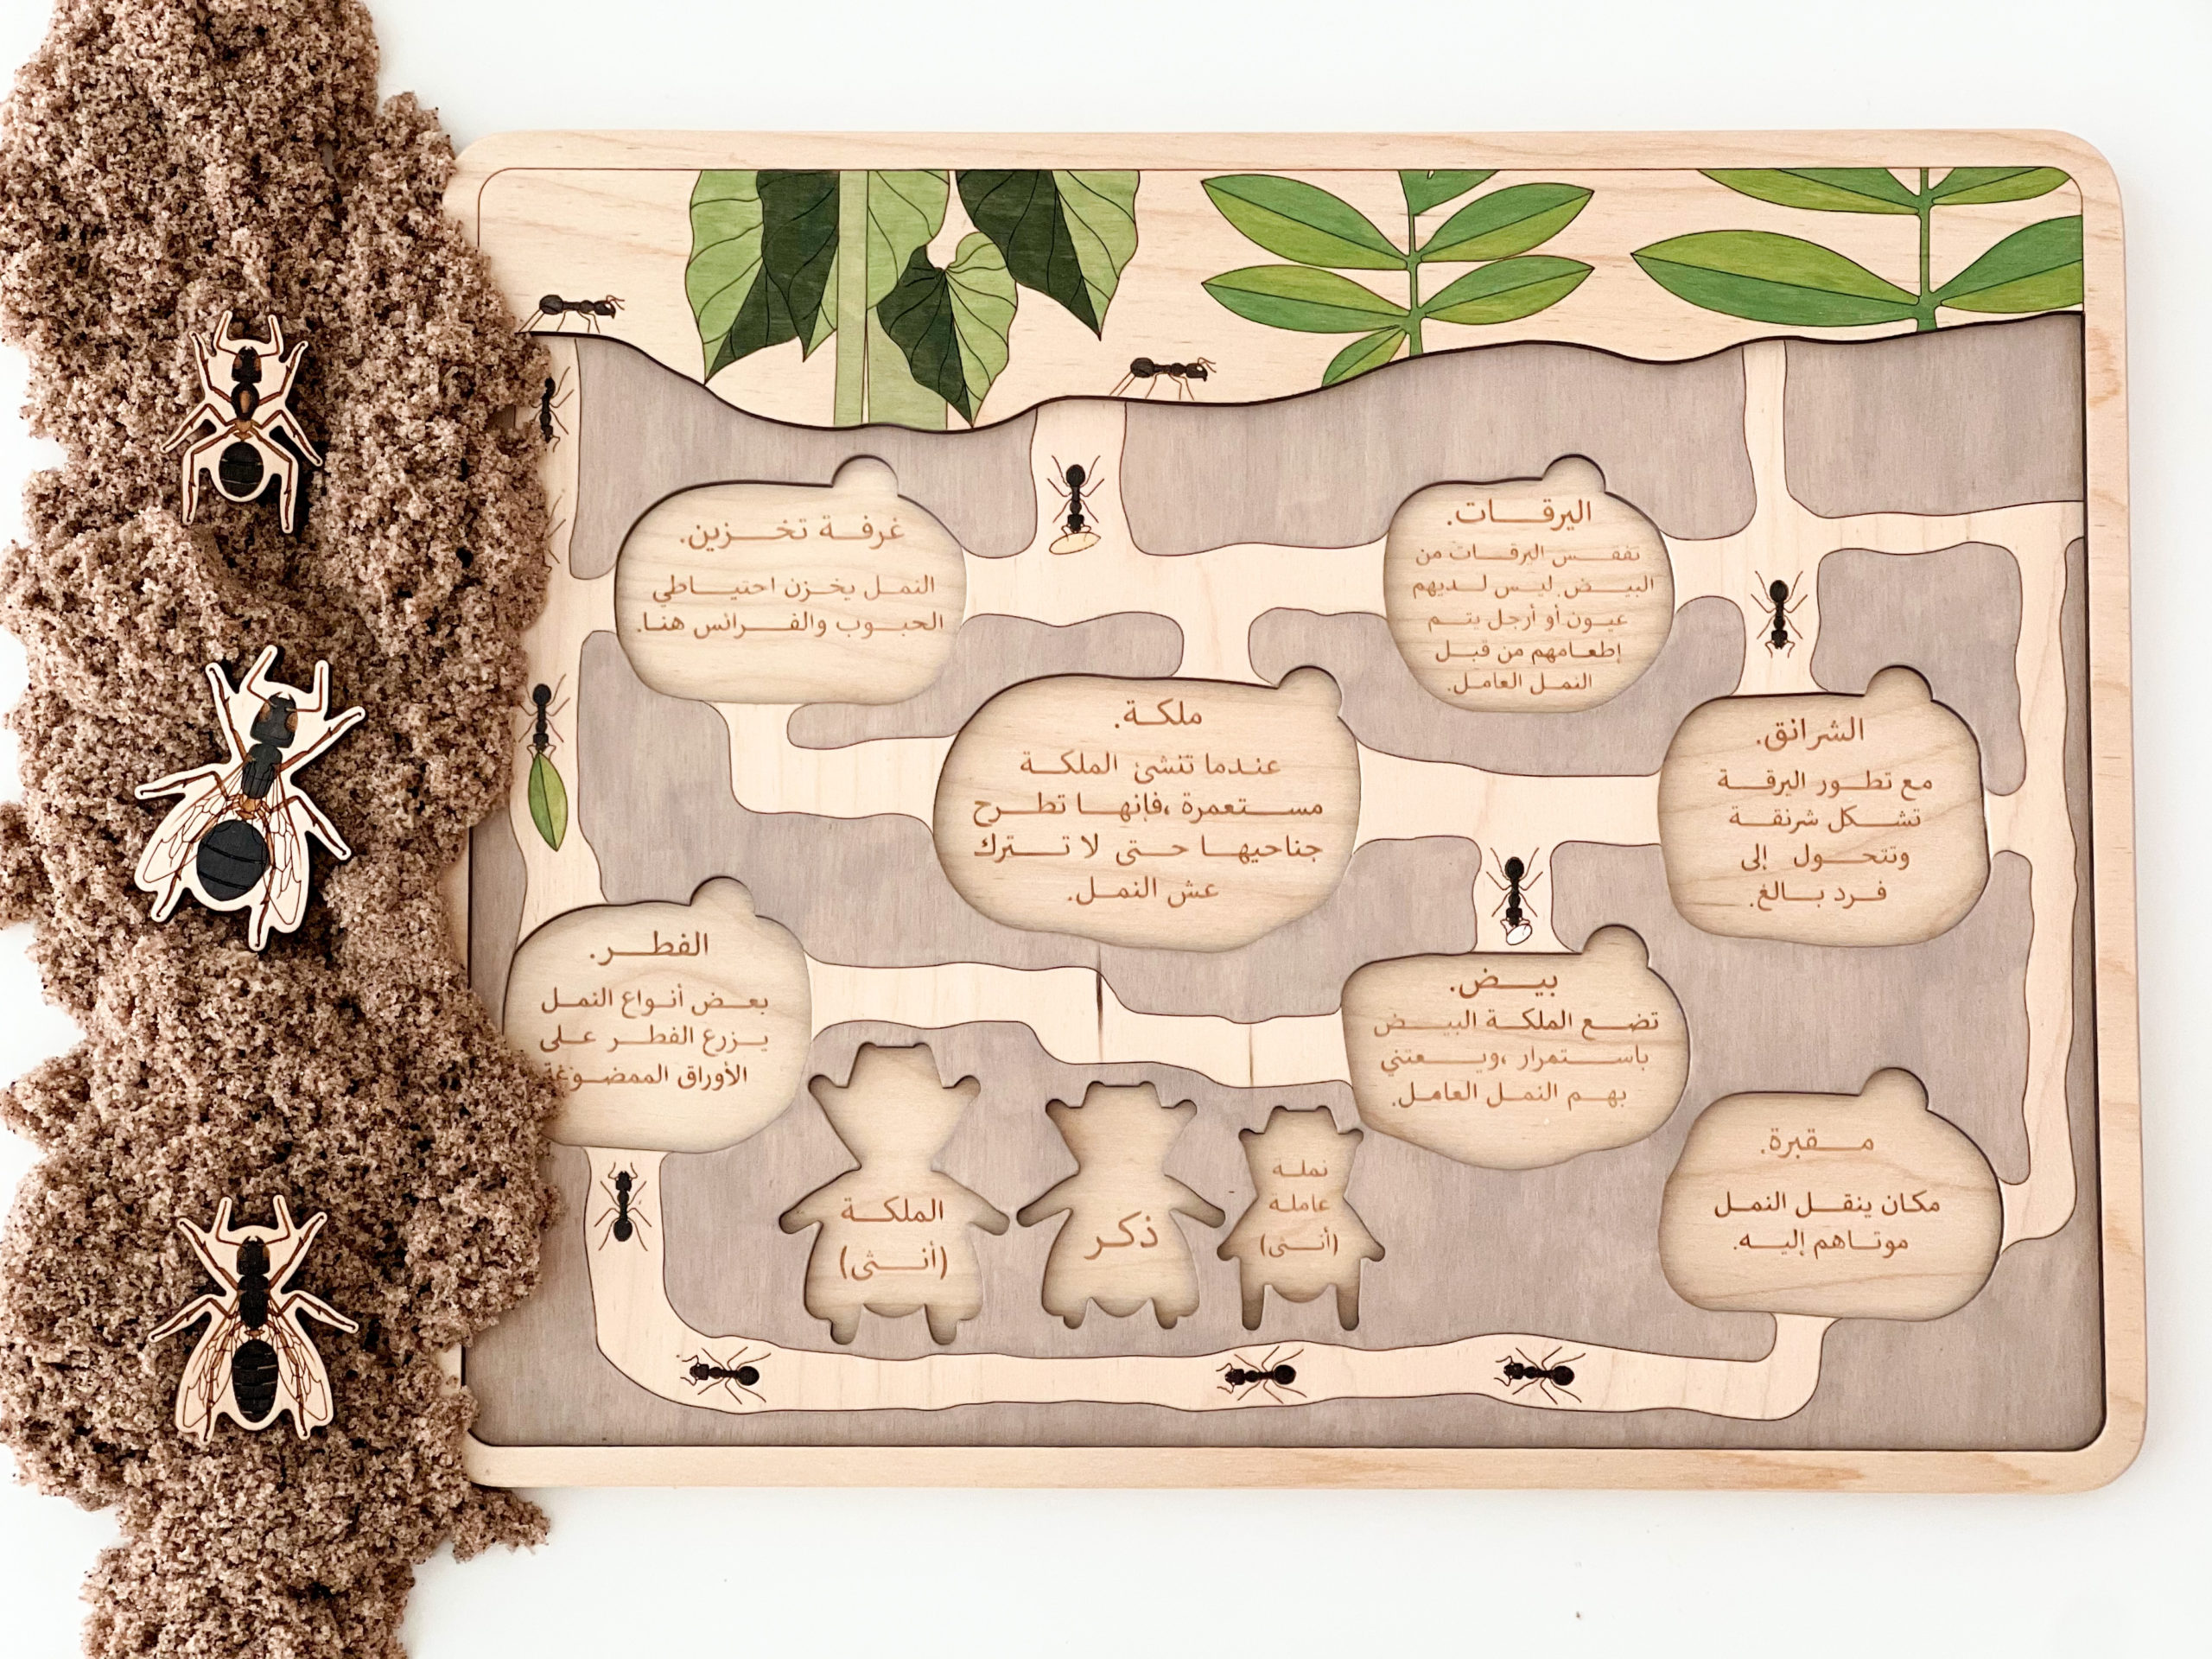 غرفة تخزين.
النمل يخزن احتياطي
الحبوب والفرائس هنا.
اليرقات.
تفقس اليرقات من
البيض. ليس لديهم
عيون أو أرجل يتم
إطعامهم من قبل
النمل العامل.
ملكة.
عندما تنشئ الملكة
مستعمرة ،فإنها تطرح
جناحيها حتى لا تترك
عش النمل.
الشرانق.
مع تطور اليرقة
تشكل شرنقة
وتتحول إلى
فرد بالغ.
الفطر.
بعض أنواع النمل
يزرع الفطر على
الأوراق الممضوغة
بيض.
تضع الملكة البيض
باستمرار ،ويعتني
بهم النمل العامل.
مقبرة.
مكان ينقل النمل
موتاهم إليه.
الملكة
(أنثى)
ذكر
نملة
عاملة
(أنثى)